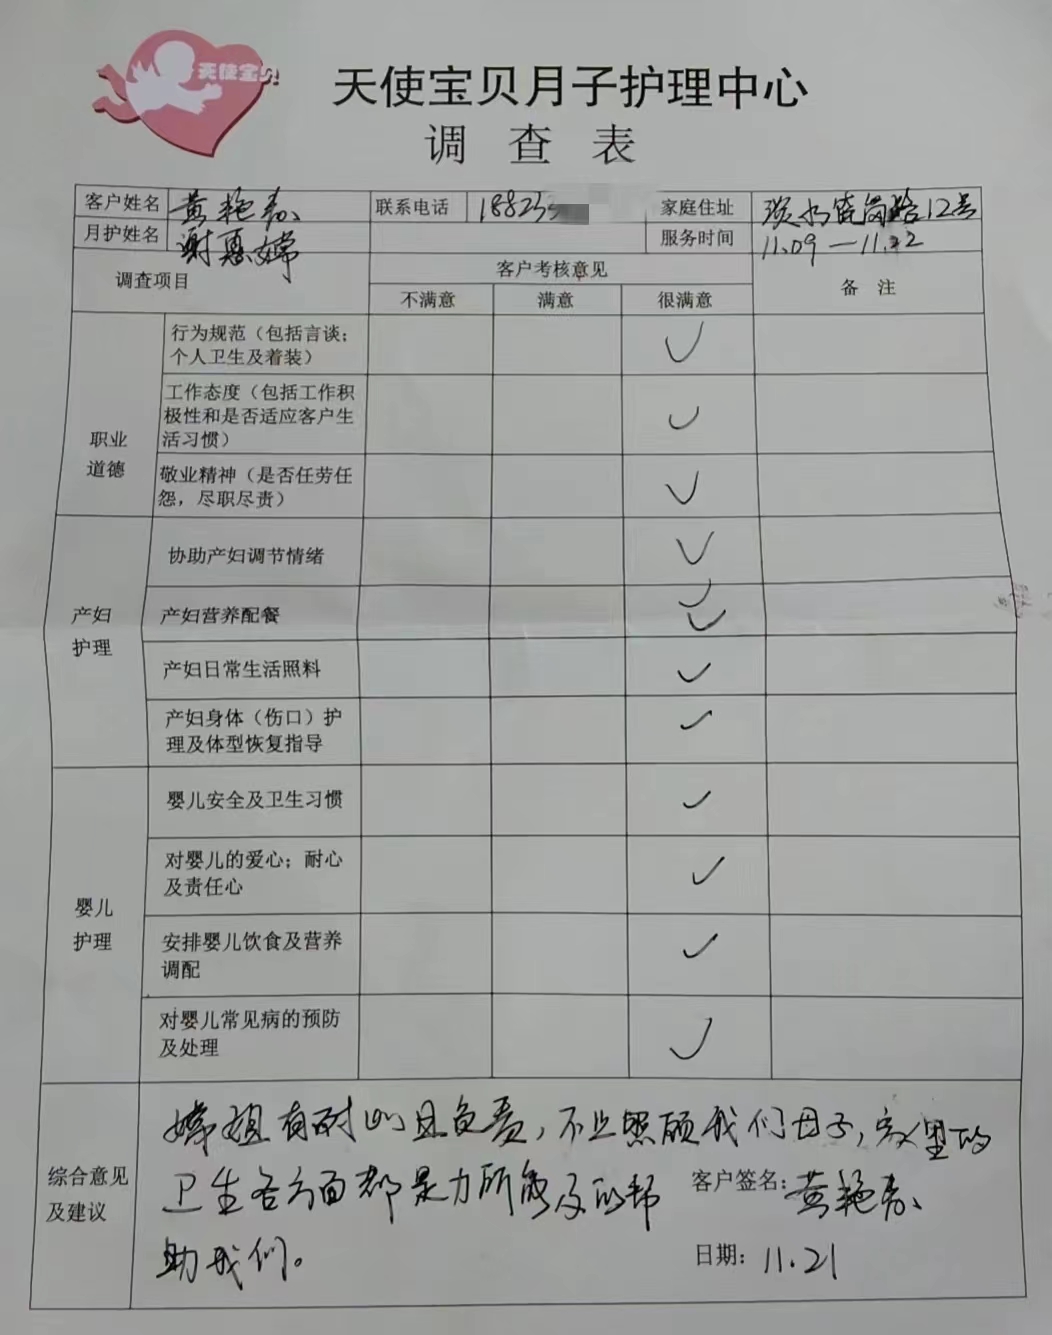 天使宝贝
天使宝贝月子护理中心
调查表
客户姓名 黄艳 联系电话 188235 家庭住址 淡水 岗路12号
月护姓名 谢惠嫦 服务时间 11.09—11.22
调查项目 客户考核意见 备注
不满意 满意 很满意
职业
道德
行为规范(包括言谈;
个人卫生及着装)
工作态度(包括工作积
极性和是否适应客户生
活习惯)
敬业精神(是否任劳任
怨,尽职尽责)
产妇
护理
协助产妇调节情绪
产妇营养配餐
产妇日常生活照料
产妇身体(伤口)护
理及体型恢复指导
婴儿
护理
婴儿安全及卫生习惯
对婴儿的爱心;耐心
及责任心
安排婴儿饮食及营养
调配
对婴儿常见病的预防
及处理
综合意见
及建议
嫦姐有耐心且负责,不止照顾我们母子,家里的
卫生各方面都是力所能及的帮
助我们。
客户签名:黄艳
日期:11.21